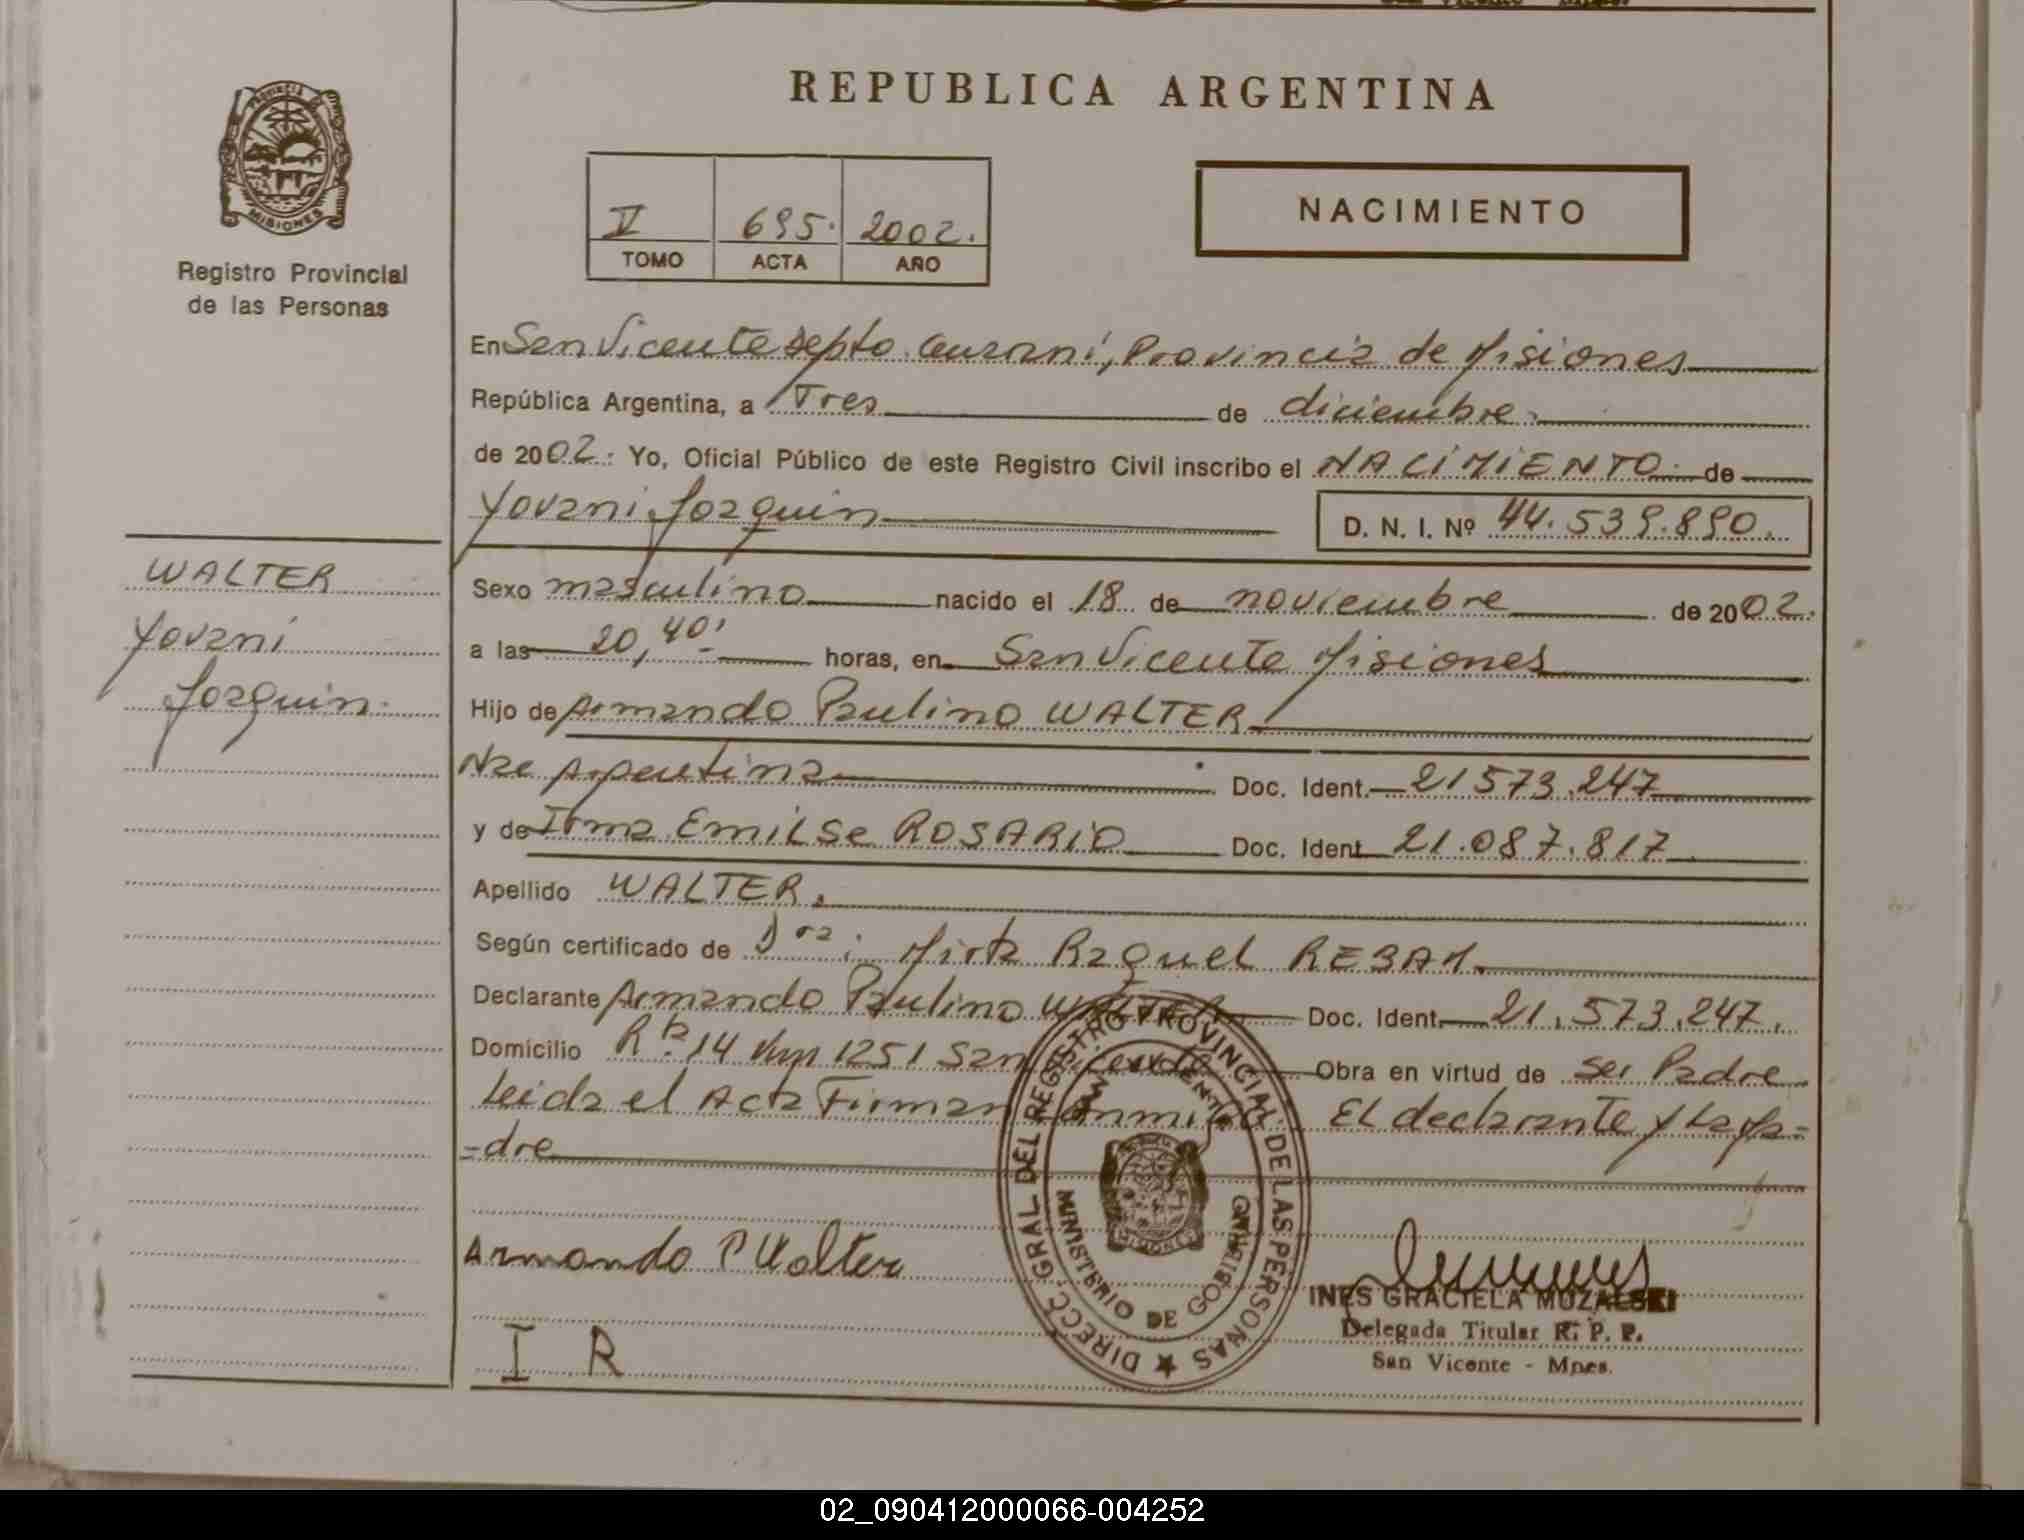 REPUBLICA ARGENTINA
PROVINCIA DE
MISIONES
Registro Provincial
de las Personas
V 695. 2002.
TOMO ACTA AÑO
NACIMIENTO
En San Vicente depto. Guarani, Provincia de Misiones
República Argentina, a Tres de diciembre.
de 2002. Yo, Oficial Público de este Registro Civil inscribo el NACIMIENTO de
Yovani Joaquin D. N. I. Nº 44.539.890.
WALTER
Yovani
Joaquin.
Sexo masculino nacido el 18 de noviembre de 2002.
a las 20,40' horas, en San Vicente Misiones
Hijo de Armando Paulino WALTER
Nac Argentina Doc. Ident. 21573.247
y de Irma Emilse ROSARIO Doc. Ident. 21.087.817
Apellido WALTER.
Según certificado de Dra: Mirta Raquel
Declarante Armando Paulino WALTER Doc. Ident. 21.573.247.
Domicilio Rta 14 Km 1251 San Vicente Obra en virtud de ser Padre
Leida el Acta Firman conmigo El declarante y La Ma=
=dre
DIRECC. GRAL DEL REGISTRO PROVINCIAL DE LAS PERSONAS
SAN VICENTE
MINISTERIO DE GOBIERNO
MISIONES
Armando P Walter
INES GRACIELA MUZALSKI
Delegada Titular R. P. P.
San Vicente - Mnes.
I R
02_090412000066-004252